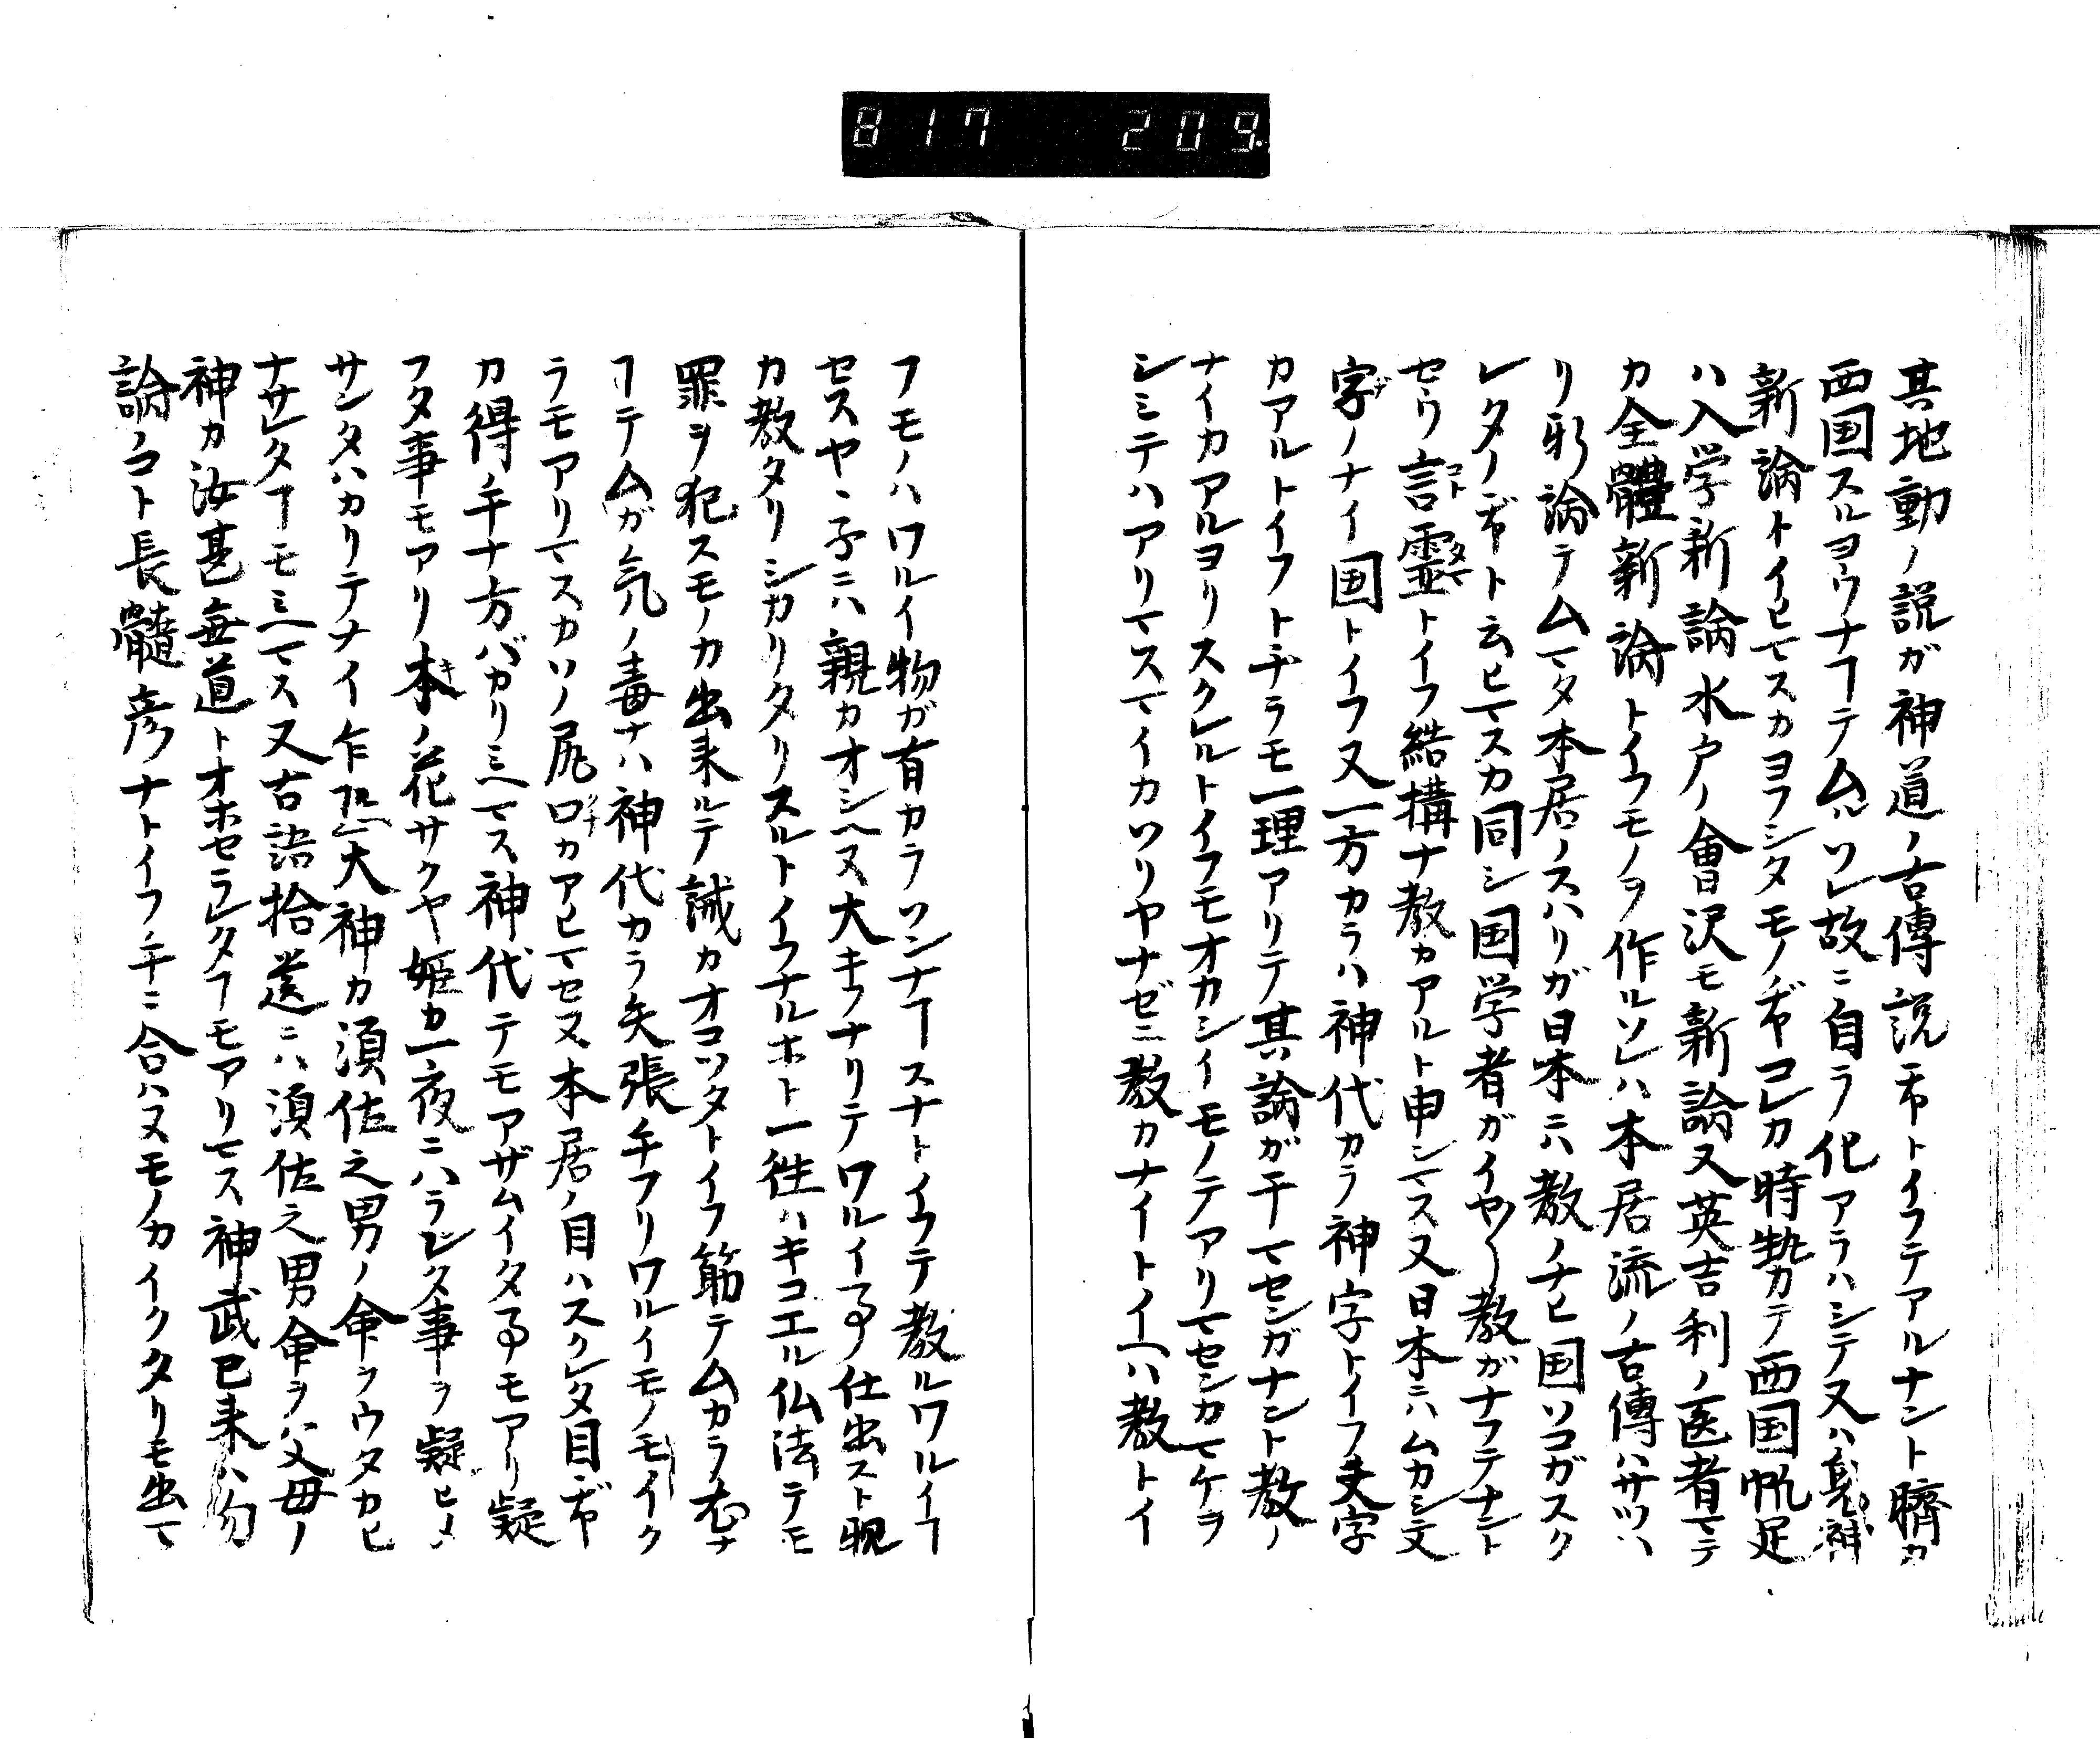 817 209
其地動ノ説ガ神道ノ古傳説ヂヤトイフテアルナント臍カ
西国スルヨウナヿテムル ソレ故ニ自ラ化アラハシテ又ハ
新論トイヒマスカヨフシタモノヂヤコレカ時勢カテ西国帆足
ハ入学新論水戸ノ會沢モ新論又英吉利ノ医者マテ
カ全體新論トイフモノヲ作ルソレハ本居流ノ古傳ハサツハ
リ邪論テムマタ本居ノスハリガ日本ニハ教ノナヒ国ソコガスク
レタノヂヤト云ヒマスカ同シ国学者ガイヤ〱教ガナフテナント
セウ言霊トイフ結構ナ教カアルト申シマス又日本ニハムカシ文
字ノナイ国トイフ又一方カラハ神代カラ神字トイフ文字
カアルトイフトチラモ一理アリテ其論ガ干マセンガナント教ノ
ナイカアルヨリスクレルトイフモオカシイモノテアリマセンカマケヲ
シミテハアリマスマイカソリヤナゼニ教カナイトイヘハ教トイ
フモノハワルイ物ガ有カラソンナヿスナトイフテ教ルワルイヿ
セスヤ、子ニハ親カオシヘヌ大キフナリテワルイ事仕出スト親
カ教タリシカリタリスルトイフナルホト一徃ハキコエル仏法テモ
罪ヲ犯スモノカ出来ルテ誡カオコツタトイフ筋テムカラ尤ナ
ヿテムガ気ノ毒ナハ神代カラ矢張手フリワルイモノモイク
ラモアリマスカソノ尻口カアヒマセヌ本居ノ目ハスクレタ目ヂヤ
カ得手ナ方バカリミヘマス神代テモアザムイタ事モアリ疑
フタ事モアリ木ノ花サクヤ姫カ一夜ニハラレタ事ヲ疑ヒメ
サンタハカリテナイ乍恐大神カ須佐之男ノ命ヲウタカヒ
ナサレタヿモミヘマス又古語拾遺ニハ須佐之男命ヲ父母ノ
神カ汝甚無道トオホセラレタヿモアリマス神武已来ハ勿
論ノコト長髓彦ナトイフ手ニ合ハヌモノカイクタリモ出マ